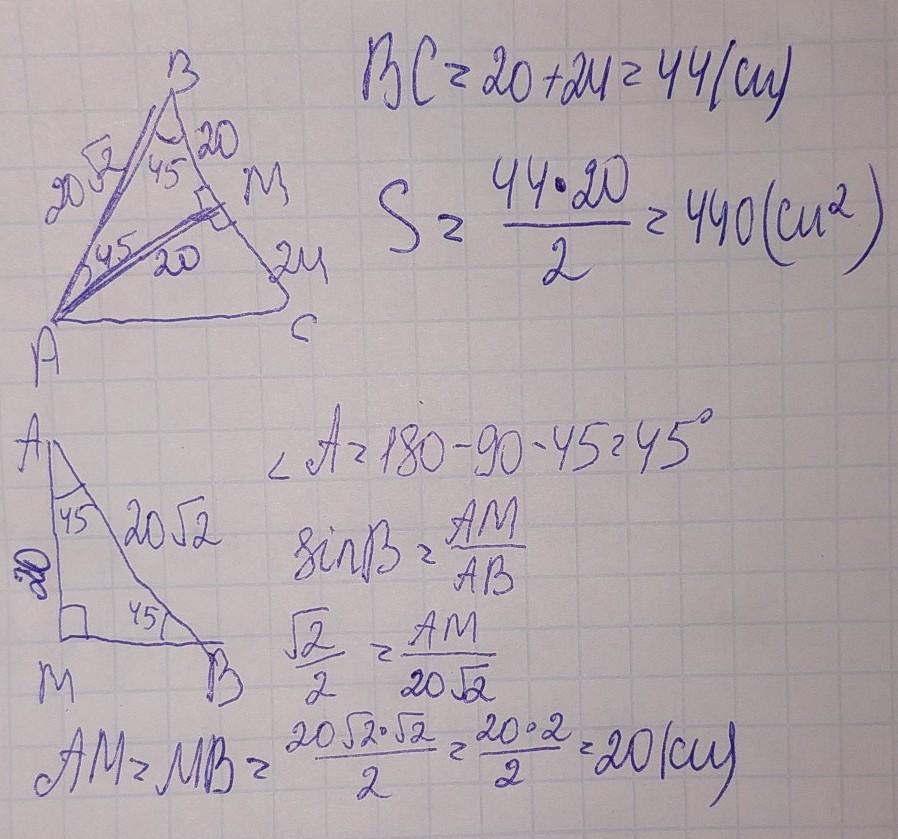 B
20√2
45
20
M
45
20
24
A
C
BC = 20+24 = 44 (см)
S = 44·20/2 = 440 (см²)
A
45
20√2
20
45
M
B
∠A = 180-90-45=45°
sinB = AM/AB
√2/2 = AM/20√2
AM = MB = 20√2·√2/2 = 20·2/2 = 20 (см)